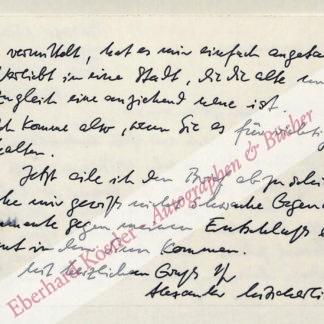 vermittelt, hat es mir einfach angetan
verliebt in eine Stadt, die die alte und
zugleich eine anziehend neue ist.
Ich komme also, wenn Sie es für wichtig
halten.
Jetzt eile ich den Brief abzuschi
mir gewiss nicht schwache Gegen
gegen meinen Entschluss
kommen.
Mit herzlichem Gruß Ihr
Alexander Mitscherli
Eberhard Köstler Autographen & Bücher